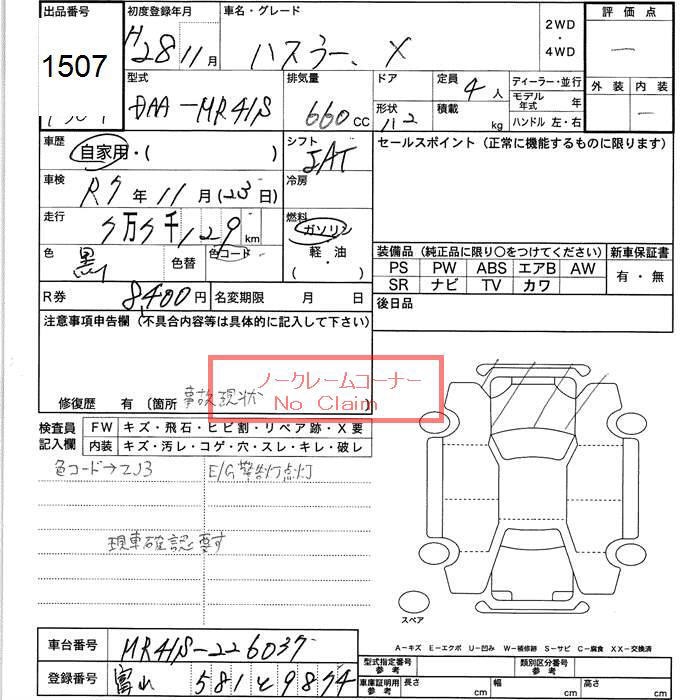 出品番号
1507
初度登録年月
H28 11月
車名・グレード
ハスラー、X
2WD
・
4WD
評価点
一
型式
DAA-MR41S
排気量
660 CC
ドア
形状
ハ2
定員
4人
積載
kg
ディーラー・並行
モデル
年式
年
ハンドル 左・右
外装
内装
一
車歴
自家用・( )
シフト
IAT
セールスポイント(正常に機能するものに限ります)
車検
R7年11月(23日)
冷房
走行
5万5千129km
燃料
ガソリン
軽・油
( ・ )
色
黒
色替
色コード
装備品(純正品に限り〇をつけてください)
新車保証書
PS PW ABS エアB AW
SR ナビ TV カワ
有・無
R券
8400円
名変期限 月 日
後日品
注意事項申告欄(不具合内容等は具体的に記入して下さい)
ノークレームコーナー
No Claim
修復歴 有〔箇所 事故現状
検査員
記入欄
FW キズ・飛石・ヒビ割・リペア跡・X要
内装 キズ・汚レ・コゲ・穴・スレ・キレ・破レ
色コード→ZJ3
E/G警告灯点灯
現車確認要す
スペア
A-キズ E-エクボ U-凹み W-補修跡 S-サビ C-腐食 XX-交換済
車台番号
MR41S-226037
登録番号
富山 581 と 9874
型式指定番号
参考
類別区分番号
参考
車庫証明用
参考
長さ cm
幅 cm
高さ cm